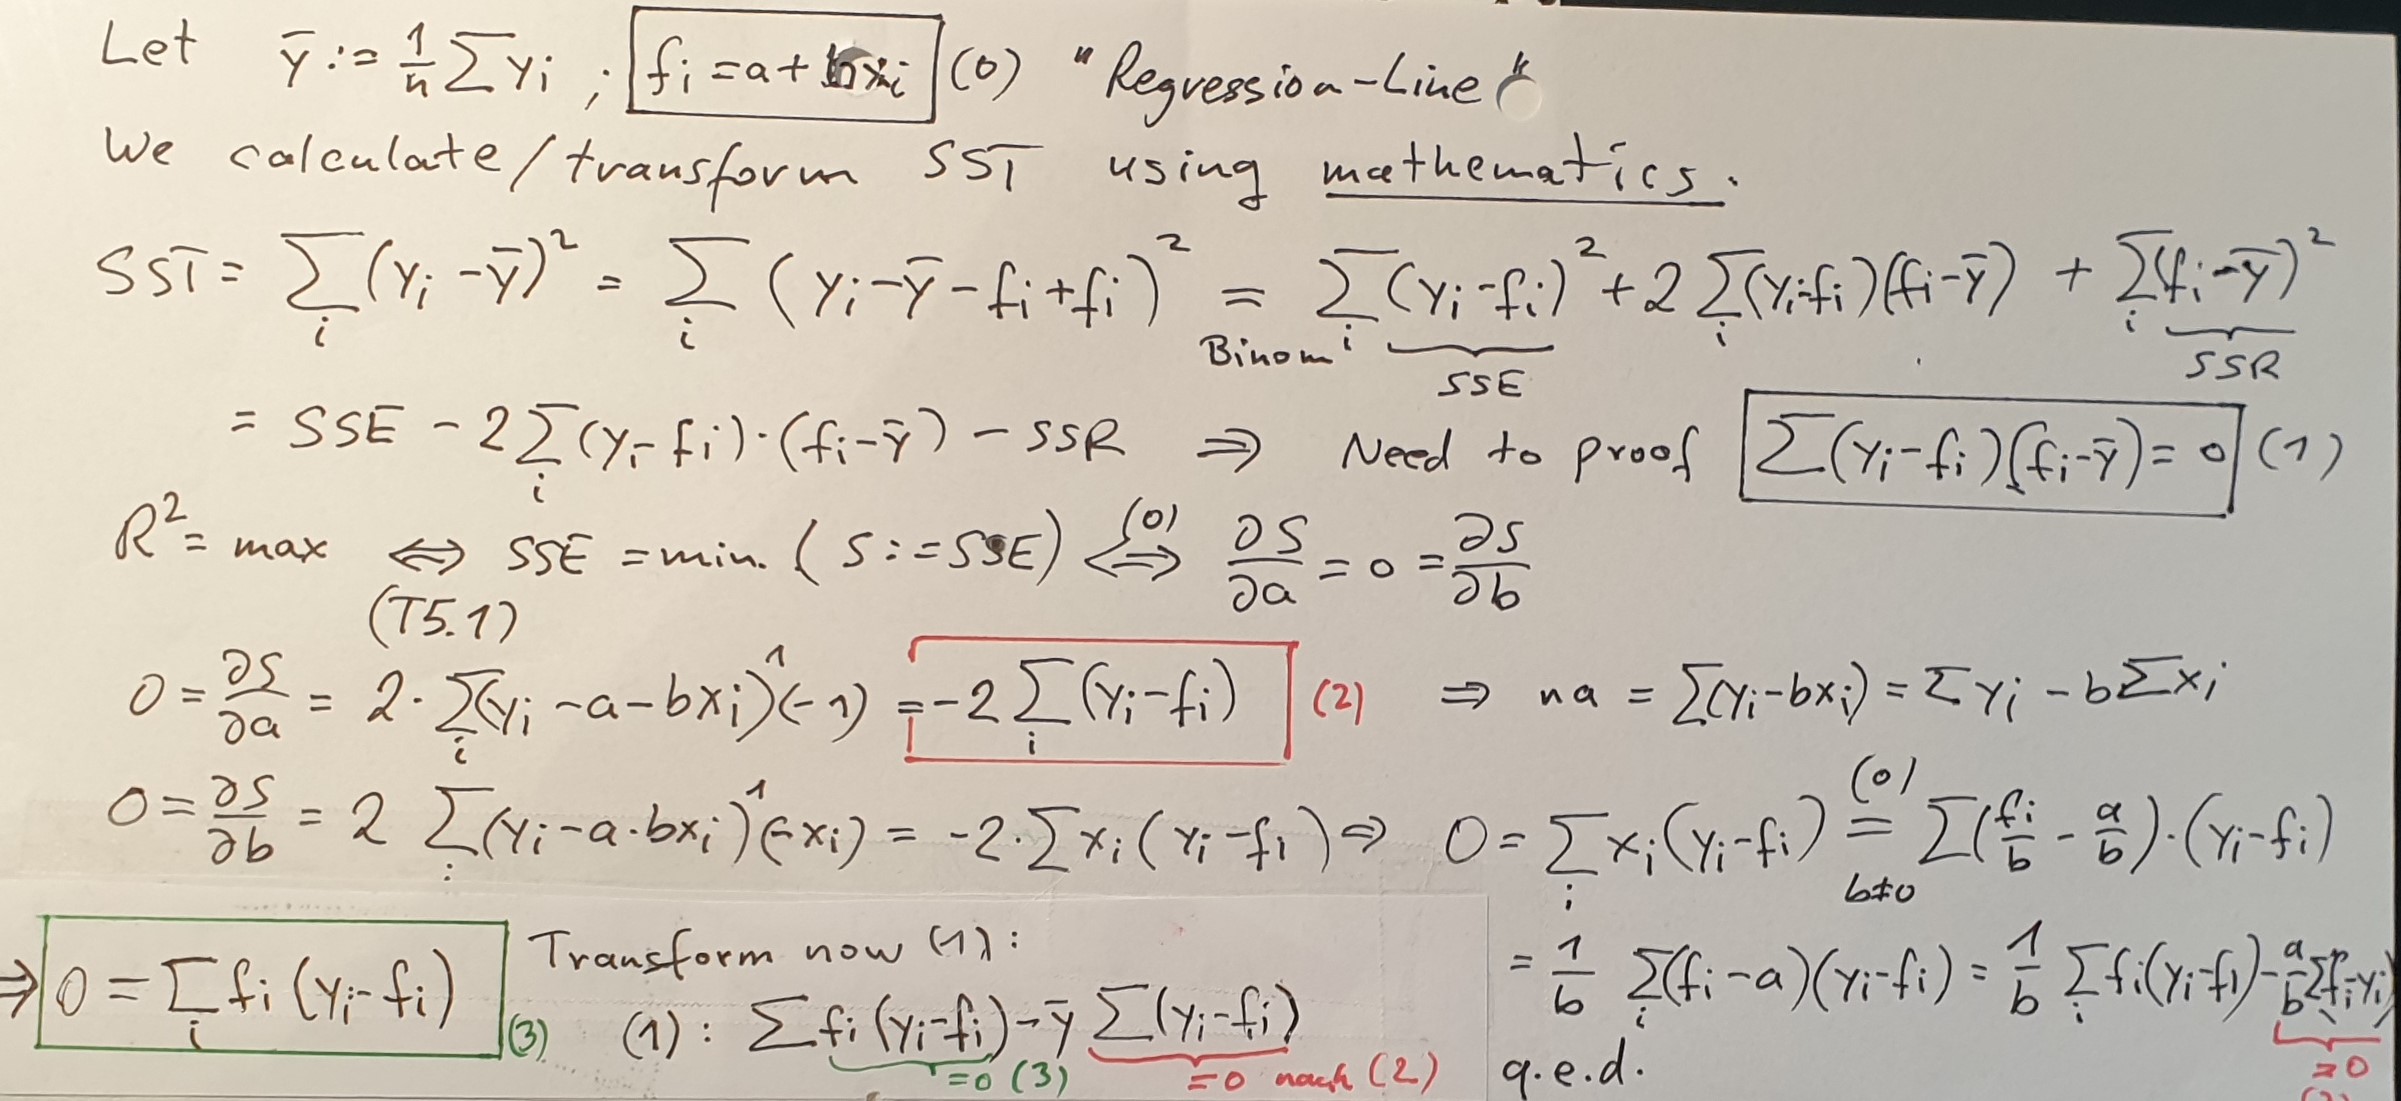 Let ȳ := 1/n ∑ yi ; fi = a + bxi (0) "Regression-Line"
We calculate/transform SST using mathematics.
SST = ∑i (yi - ȳ)² = ∑i (yi - ȳ - fi + fi)² = Binom ∑i (yi - fi)² + 2 ∑i (yi - fi)(fi - ȳ) + ∑i (fi - ȳ)²
SSE SSR
= SSE - 2 ∑i (yi - fi)·(fi - ȳ) - SSR ⇒ Need to proof ∑(yi - fi)(fi - ȳ) = 0 (1)
R² = max ⇔ SSE = min. (S := SSE) ⇔ (0) ∂S/∂a = 0 = ∂S/∂b
(T5.1)
0 = ∂S/∂a = 2· ∑i (yi - a - bxi)¹(-1) = -2 ∑i (yi - fi) (2) ⇒ na = ∑(yi - bxi) = ∑yi - b∑xi
0 = ∂S/∂b = 2 ∑i (yi - a·bxi)¹(-xi) = -2·∑xi(yi - fi) ⇒ 0 = ∑i xi(yi - fi) = (0) b≠0 ∑(fi/b - a/b)·(yi - fi)
= 1/b ∑i (fi - a)(yi - fi) = 1/b ∑i fi(yi - fi) - a/b ∑(fi - yi)
=0
⇒ 0 = ∑i fi (yi - fi) (3)
Transform now (1):
(1): ∑ fi (yi - fi) - ȳ ∑(yi - fi)
=0 (3) =0 nach (2)
q.e.d.